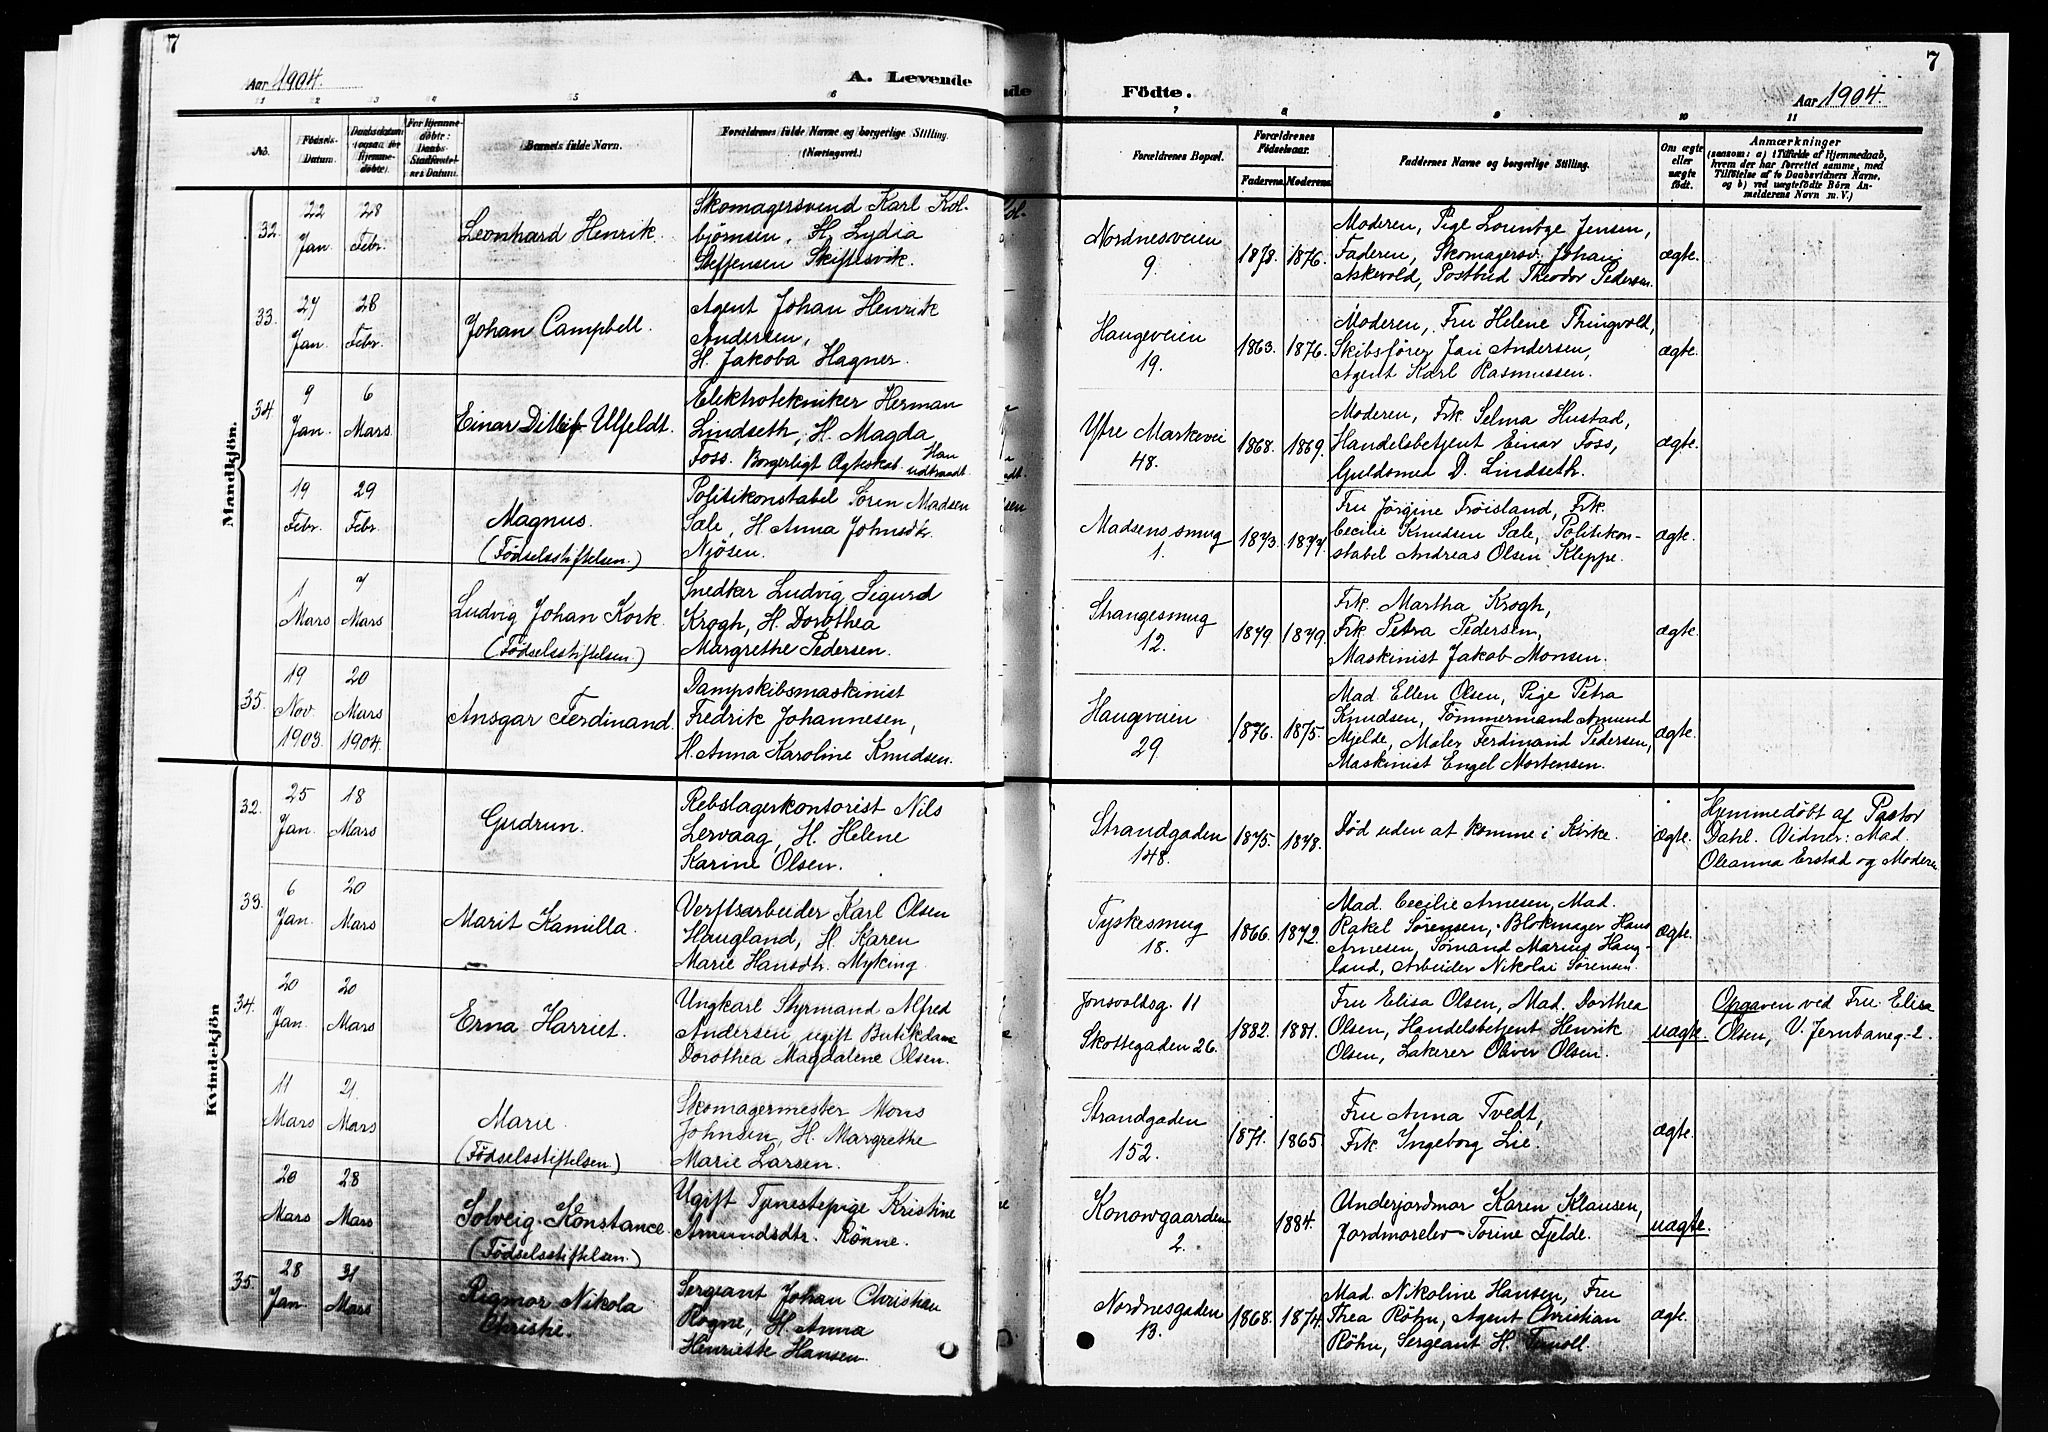 7
Aar 1904.
A. Levende
1 2 3 4 5 6
No.
Fødsels-
Datum.
Daabsdatum
(ogsaa for
Hjemme-
døbte).
For Hjemme-
døbte:
Daabs-
Stadfæstel-
ses Datum.
Barnets fulde Navn.
Forældrenes fulde Navne og borgerlige Stilling.
(Næringsvei.)
Mandkjøn.
32.
22
Jan.
28
Febr.
Leonhard Henrik.
Skomagersvend Karl Kol-
bjørnsen, H. Lydia
Steffensen Skiftesvik.
33.
27
Jan.
28
Febr.
Johan Campbell.
Agent Johan Henrik
Andersen,
H. Jakoba Hagner.
34.
9
Jan.
6
Mars
Einar Ditlef Ulfeldt.
Elektrotekniker Herman
Lindseth, H. Magda
Foss. Borgerligt Ægteskab. Han
udtraadt.
19
Febr.
29
Febr.
Magnus.
(Fødselsstiftelsen.)
Politikonstabel Søren Madsen
Sæle, H. Anna Johnsdtr.
Njøsen.
1
Mars
7
Mars
Ludvig Johan Kork.
(Fødselsstiftelsen.)
Snedker Ludvig Sigurd
Krogh, H. Dorothea
Margrethe Pedersen.
35.
19
Nov.
1903.
20
Mars
1904.
Ansgar Ferdinand.
Dampskibsmaskinist
Fredrik Johannesen,
H. Anna Karoline Knudsen.
Kvindekjön
32.
25
Jan.
18
Mars
Gudrun.
Rebslagerkontorist Nils
Lervaag, H. Helene
Karine Olsen.
33.
6
Jan.
20
Mars
Marit Kamilla.
Verftsarbeider Karl Olsen
Haugland, H. Karen
Marie Hansdtr. Myking.
34.
20
Jan.
20
Mars
Erna Harriet.
Ungkarl Styrmand Alfred
Andersen, ugift Butikdame
Dorothea Magdalene Olsen.
11
Mars
21
Mars
Marie.
(Fødselsstiftelsen.)
Skomagermester Mons
Johnsen, H. Margrethe
Marie Larsen.
20
Mars
28
Mars
Solveig Konstance.
(Fødselsstiftelsen.)
Ugift Tjenestepige Kristine
Amundsdtr. Rønne.
35.
28
Jan.
31
Mars
Rigmor Nikola
Christie.
Sergeant Johan Christian
Rogne, H. Anna
Henriette Hansen.
Födte.
7
Aar 1904.
7 8 9 10 11
Forældrenes Bopæl.
Forældrenes
Fødselsaar.
Faderens Moderens
Faddernes Navne og borgerlige Stilling.
Om ægte
eller
uægte
født.
Anmærkninger
(saasom: a) i Tilfælde af Hjemmedaab,
hvem der har forrettet samme, med
Tilføielse af to Daabsvidners Navne,
og b) ved uægtefødte Börn An-
melderens Navn m. V.)
Nordnesveien
9.
1878. 1876.
Moderen, Pige Jensen,
Faderen, Skomagersv. Johan
Askevold, Postbud Theodor Pedersen.
ægte.
Haugeveien
19.
1863. 1876.
Moderen, Fru Helene Thingvold,
Skibsfører Jan Andersen,
Agent Karl Rasmussen.
ægte.
Ytre Markevei
48.
1868. 1869.
Moderen, Frk. Selma Hustad,
Handelsbetjent Einar Foss,
Guldsmed D. Lindseth.
ægte.
Madsens smug
1.
1873. 1877.
Fru Jørgine Frøisland, Frk.
Cecilie Knudsen Sæle, Politikon-
stabel Andreas Olsen Kleppe.
ægte.
Strangesmug
12.
1879. 1879.
Frk. Martha Krogh,
Frk. Petra Pedersen,
Maskinist Jakob Monsen.
ægte.
Haugeveien
29.
1876. 1875.
Mad. Ellen Olsen, Pige Petra
Knudsen, Tømmermand Amund
Mjelde, Maler Ferdinand Pedersen,
Maskinist Engel Mortensen.
ægte.
Strandgaden
148.
1875. 1878.
Død uden at komme i Kirke.
ægte.
Hjemmedøbt af Pastor
Dahl. Vidner: Mad.
Oleanna Erstad og Moderen
Tyskesmug
18.
1866. 1872.
Mad. Cecilie Arnesen, Mad.
Rakel Sørensen, Blokmager Hans
Arnesen, Sømand Marius Haug-
land, Arbeider Nikolai Sørensen.
ægte.
Jonsvoldsg. 11
Skottegaden 26.
1882. 1881.
Fru Elisa Olsen, Mad. Dorthea
Olsen, Handelsbetjent Henrik
Olsen, Lakerer Oliver Olsen.
uægte.
Opgaven ved Fru Elisa
Olsen, V. Jernbaneg. 2.
Strandgaden
152.
1871. 1865.
Fru Anna Tvedt,
Frk. Ingeborg Lie.
ægte.
Konowgaarden
2.
1884.
Underjordmor Karen Klausen,
Jordmorelev Torine Fjelde.
uægte.
Nordnesgaden
13.
1868. 1874.
Mad. Nikoline Hansen, Fru
Thea Røhn, Agent Christian
Røhn, Sergeant H.
ægte.